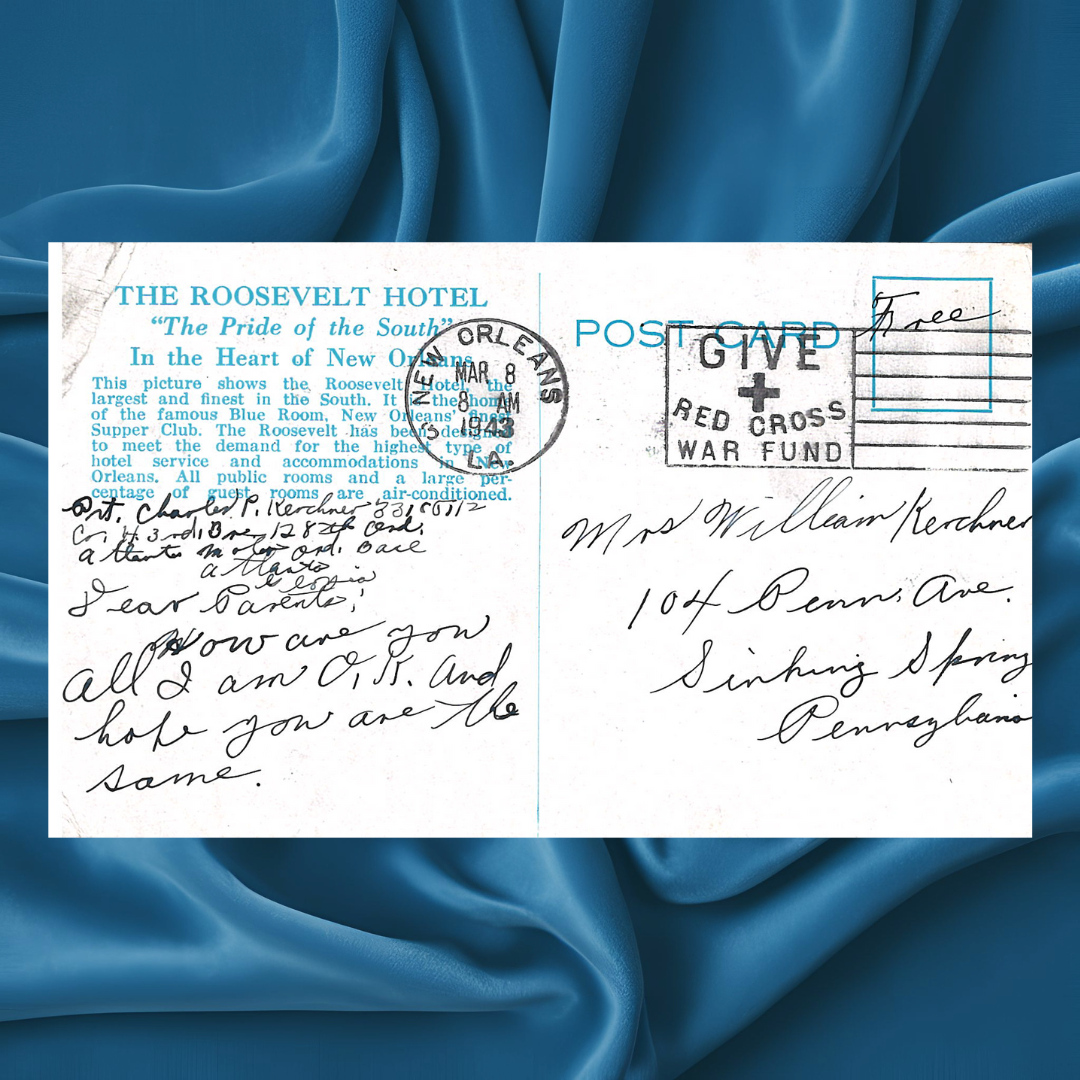 THE ROOSEVELT HOTEL
"The Pride of the South"
In the Heart of New Orleans
This picture shows the Roosevelt Hotel, the
largest and finest in the South. It is the home
of the famous Blue Room, New Orleans' finest
Supper Club. The Roosevelt has been designed
to meet the demand for the highest type of
hotel service and accommodations in New
Orleans. All public rooms and a large per-
centage of guest rooms are air-conditioned.
Pvt. Charles P. Kerchner
Co. H. 3rd. 128th Ord.
Atlanta Motor Ord. Base
Atlanta
Georgia
Dear Parents,
How are you
all I am O.K. And
hope you are the
same.
NEW ORLEANS
MAR 8
8 AM
1943
LA.
POST CARD
Free
GIVE
RED CROSS
WAR FUND
Mrs William Kerchner
104 Penn. Ave.
Sinking Spring
Pennsylvania